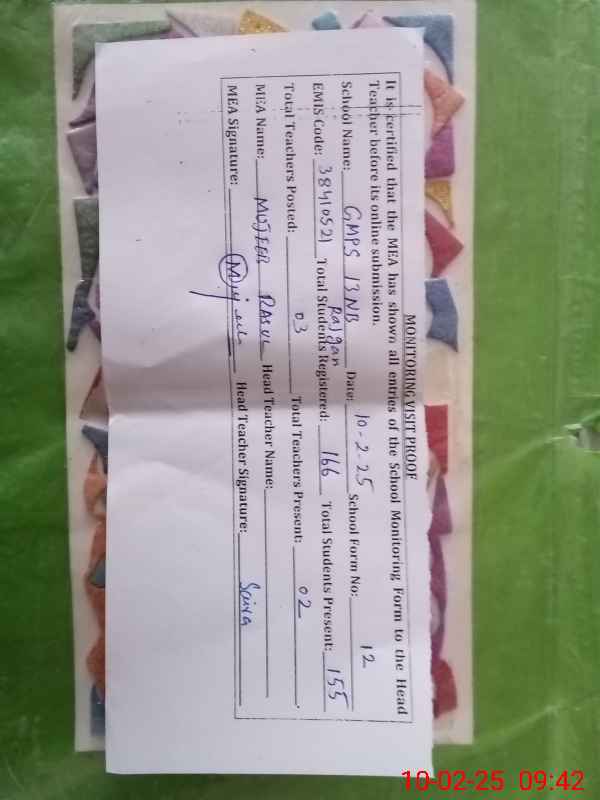 MONITORING VISIT PROOF
It is certified that the MEA has shown all entries of the School Monitoring Form to the Head
Teacher before its online submission.
School Name: GMPS 13NB Rajgan Date: 10-2-25 School Form No: 12
EMIS Code: 38410521 Total Students Registered: 166 Total Students Present: 155
Total Teachers Posted: 03 Total Teachers Present: 02
MEA Name: MUJEEB RASUL Head Teacher Name:
MEA Signature: Mujeeb Head Teacher Signature: Saira
10-02-25 09:42